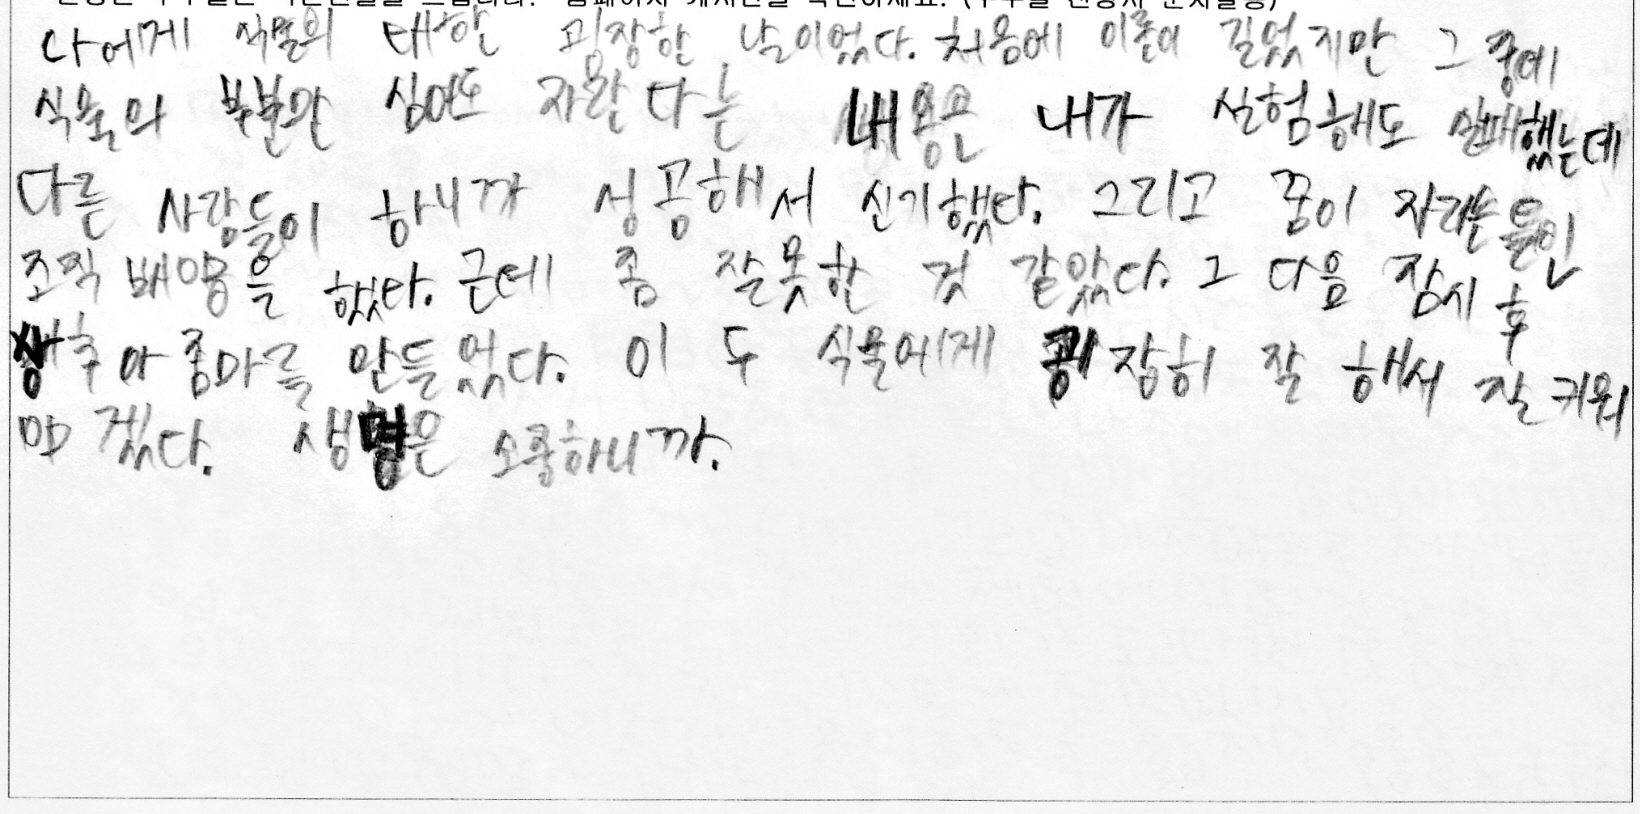 나에게 식물의 대한 굉장한 날이었다. 처음에 이론이 길었지만 그 중에
식물의 부분만 심어도 자란다는 내용은 내가 실험해도 실패했는데
다른 사람들이 하니까 성공해서 신기했다. 그리고 꿈이 자라는
조직 배양을 했다. 근데 좀 잘못한 것 같았다. 그 다음 잠시 후
상추 아 좀마를 만들었다. 이 두 식물에게 굉장히 잘 해서 잘 키워
야 겠다. 생명은 소중하니까.